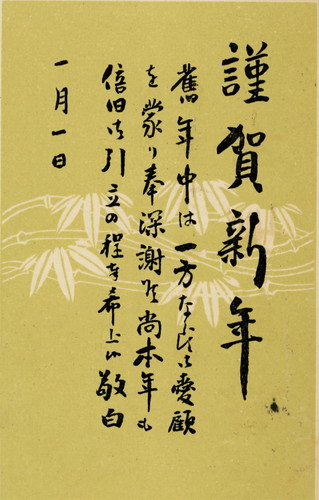 謹賀新年
舊年中は一方ならず御愛顧
を蒙り奉深謝候尚本年も
倍旧御引立の程幸希上候 敬白
一月一日